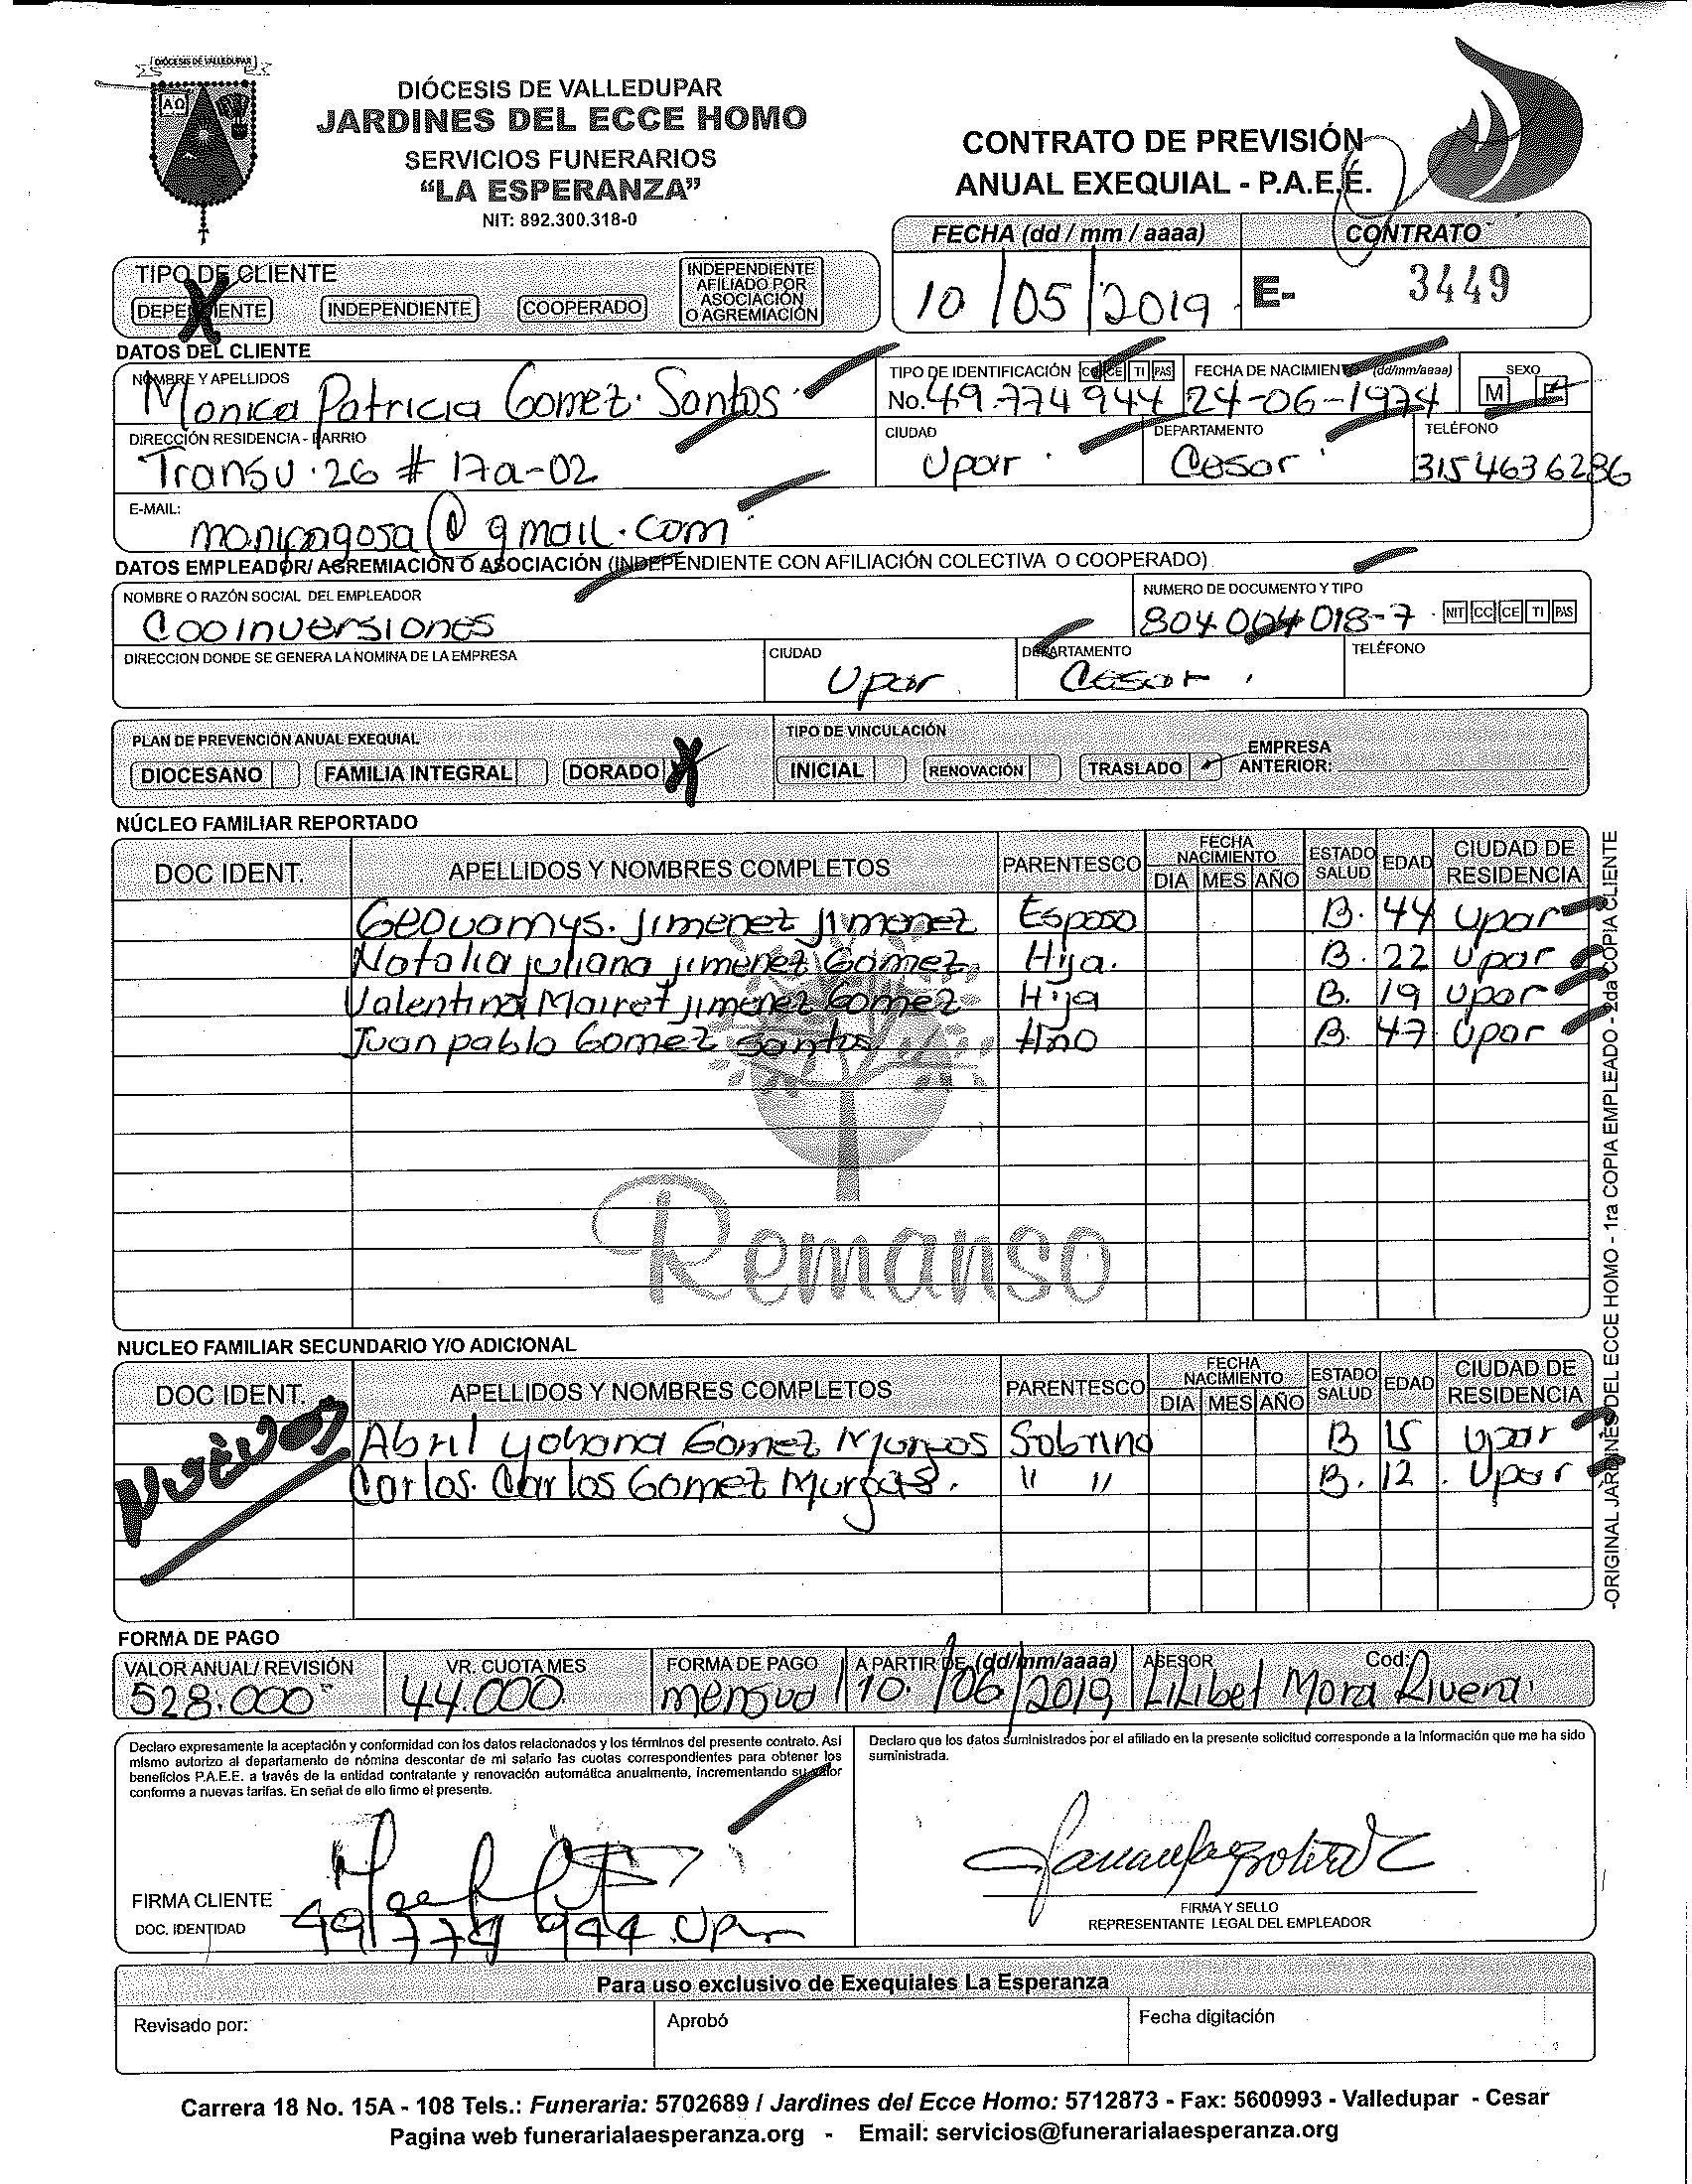 DIÓCESIS DE VALLEDUPAR
DIÓCESIS DE VALLEDUPAR
JARDINES DEL ECCE HOMO
SERVICIOS FUNERARIOS
“LA ESPERANZA”
NIT: 892.300.318-0
CONTRATO DE PREVISIÓN
ANUAL EXEQUIAL - P.A.E.E.
FECHA (dd / mm / aaaa) CONTRATO
10 /05/2019 E- 3449
TIPO DE CLIENTE
DEPENDIENTE INDEPENDIENTE COOPERADO INDEPENDIENTE AFILIADO POR ASOCIACIÓN O AGREMIACIÓN
DATOS DEL CLIENTE
NOMBRE Y APELLIDOS TIPO DE IDENTIFICACIÓN CC CE TI PAS FECHA DE NACIMIENTO (dd/mm/aaaa) SEXO
Monica Patricia Gomez Santos No. 49.774944 24-06-1974 M F
DIRECCIÓN RESIDENCIA - BARRIO CIUDAD DEPARTAMENTO TELÉFONO
Transv. 26 # 17a-02 Upar Cesar 3154636286
E-MAIL:
monipagosa@gmail.com
DATOS EMPLEADOR/ AGREMIACIÓN O ASOCIACIÓN (INDEPENDIENTE CON AFILIACIÓN COLECTIVA O COOPERADO)
NOMBRE O RAZÓN SOCIAL DEL EMPLEADOR NUMERO DE DOCUMENTO Y TIPO
Cooinversiones 804004018-7 NIT CC CE TI PAS
DIRECCION DONDE SE GENERA LA NOMINA DE LA EMPRESA CIUDAD DEPARTAMENTO TELÉFONO
Upar Cesar
PLAN DE PREVENCIÓN ANUAL EXEQUIAL TIPO DE VINCULACIÓN
DIOCESANO FAMILIA INTEGRAL DORADO X INICIAL RENOVACIÓN TRASLADO EMPRESA ANTERIOR:
NÚCLEO FAMILIAR REPORTADO
DOC IDENT. APELLIDOS Y NOMBRES COMPLETOS PARENTESCO FECHA NACIMIENTO DIA MES AÑO ESTADO SALUD EDAD CIUDAD DE RESIDENCIA
Geovamys. Jimenez Jimenez Esposo B. 44 Upar
Natalia juliana jimenez Gomez Hija. B. 22 Upar
Valentina Mairet jimenez Gomez Hija B. 19 Upar
Juan pablo Gomez Santos Hno B. 47 Upar
Remanso
NUCLEO FAMILIAR SECUNDARIO Y/O ADICIONAL
DOC IDENT. APELLIDOS Y NOMBRES COMPLETOS PARENTESCO FECHA NACIMIENTO DIA MES AÑO ESTADO SALUD EDAD CIUDAD DE RESIDENCIA
Nuevos
Abril yohana Gomez Murgas Sobrino B 15 Upar
Carlos. Carlos Gomez Murgas. " " B. 12 Upar
FORMA DE PAGO
VALOR ANUAL/ REVISIÓN VR. CUOTA MES FORMA DE PAGO A PARTIR DE (dd/mm/aaaa) ASESOR Cod:
528.000 44.000 mensual 10. /06/2019 Lilibet Mora Rivera
Declaro expresamente la aceptación y conformidad con los datos relacionados y los términos del presente contrato. Asi
mismo autorizo al departamento de nómina descontar de mi salario las cuotas correspondientes para obtener los
beneficios P.A.E.E. a través de la entidad contratante y renovación automática anualmente, incrementando su valor
conforme a nuevas tarifas. En señal de ello firmo el presente.
Declaro que los datos suministrados por el afiliado en la presente solicitud corresponde a la información que me ha sido
suministrada.
FIRMA CLIENTE
DOC. IDENTIDAD 49 774 944 Upar
FIRMA Y SELLO
REPRESENTANTE LEGAL DEL EMPLEADOR
Para uso exclusivo de Exequiales La Esperanza
Revisado por: Aprobó Fecha digitación
Carrera 18 No. 15A - 108 Tels.: Funeraria: 5702689 / Jardines del Ecce Homo: 5712873 - Fax: 5600993 - Valledupar - Cesar
Pagina web funerarialaesperanza.org - Email: servicios@funerarialaesperanza.org
-ORIGINAL JARDINES DEL ECCE HOMO - 1ra COPIA EMPLEADO - 2da COPIA CLIENTE